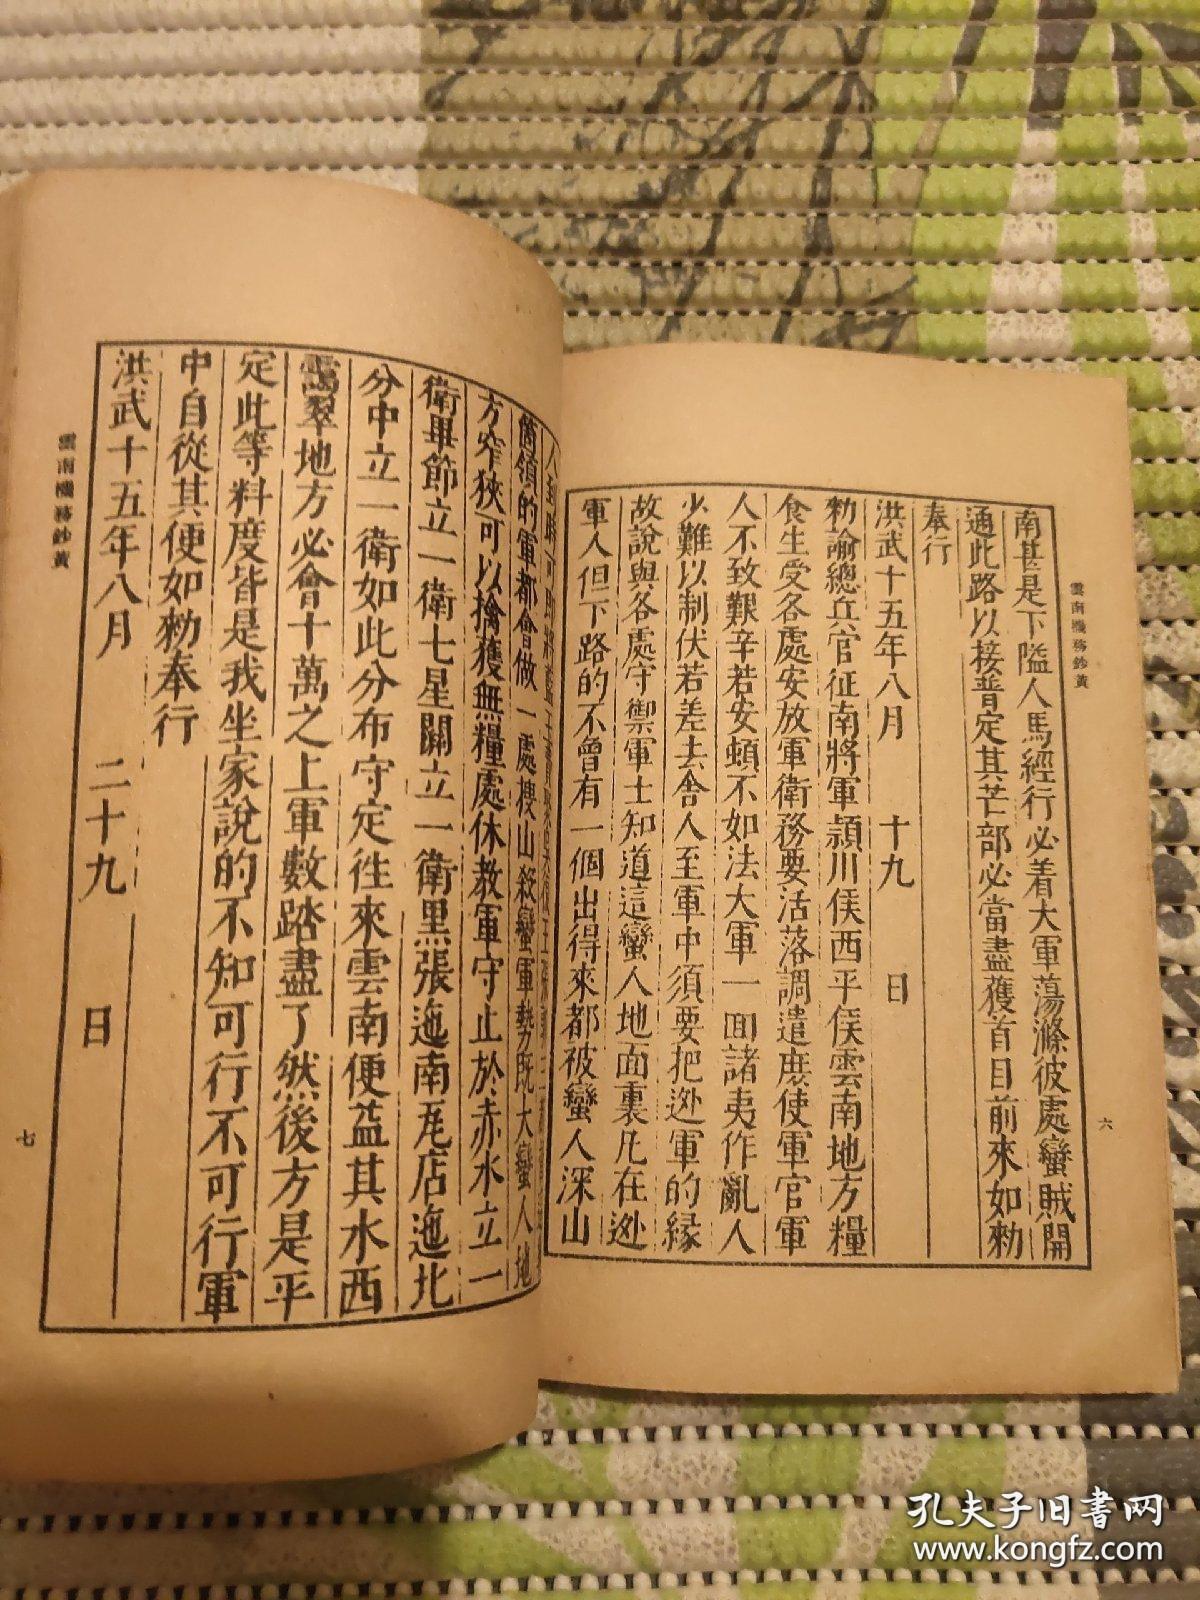 雲南機務鈔黃
六
南甚是下隘人馬經行必着大軍蕩滌彼處蠻賊開
通此路以接普定其芒部必當盡獲首目前來如勑
奉行
洪武十五年八月 十九 日
勑諭總兵官征南將軍潁川侯西平侯雲南地方糧
食生受各處安放軍衛務要活落調遣庶使軍官軍
人不致艱辛若安頓不如法大軍一回諸夷作亂人
少難以制伏若差去舍人至軍中須要把逃軍的緣
故說與各處守禦軍士知道這蠻人地面裏凡在逃
軍人但下路的不曾有一個出得來都被蠻人深山
領的軍都會做一處搜山殺蠻軍勢既大蠻人地
方窄狹可以擒獲無糧處休教軍守止於赤水立一
衛畢節立一衛七星關立一衛黑張迤南瓦店迤北
分中立一衛如此分布守定往來雲南便益其水西
靄翠地方必會十萬之上軍數踏盡了然後方是平
定此等料度皆是我坐家說的不知可行不可行軍
中自從其便如勑奉行
洪武十五年八月 二十九 日
雲南機務鈔黃
七
孔夫子旧书网
www.kongfz.com